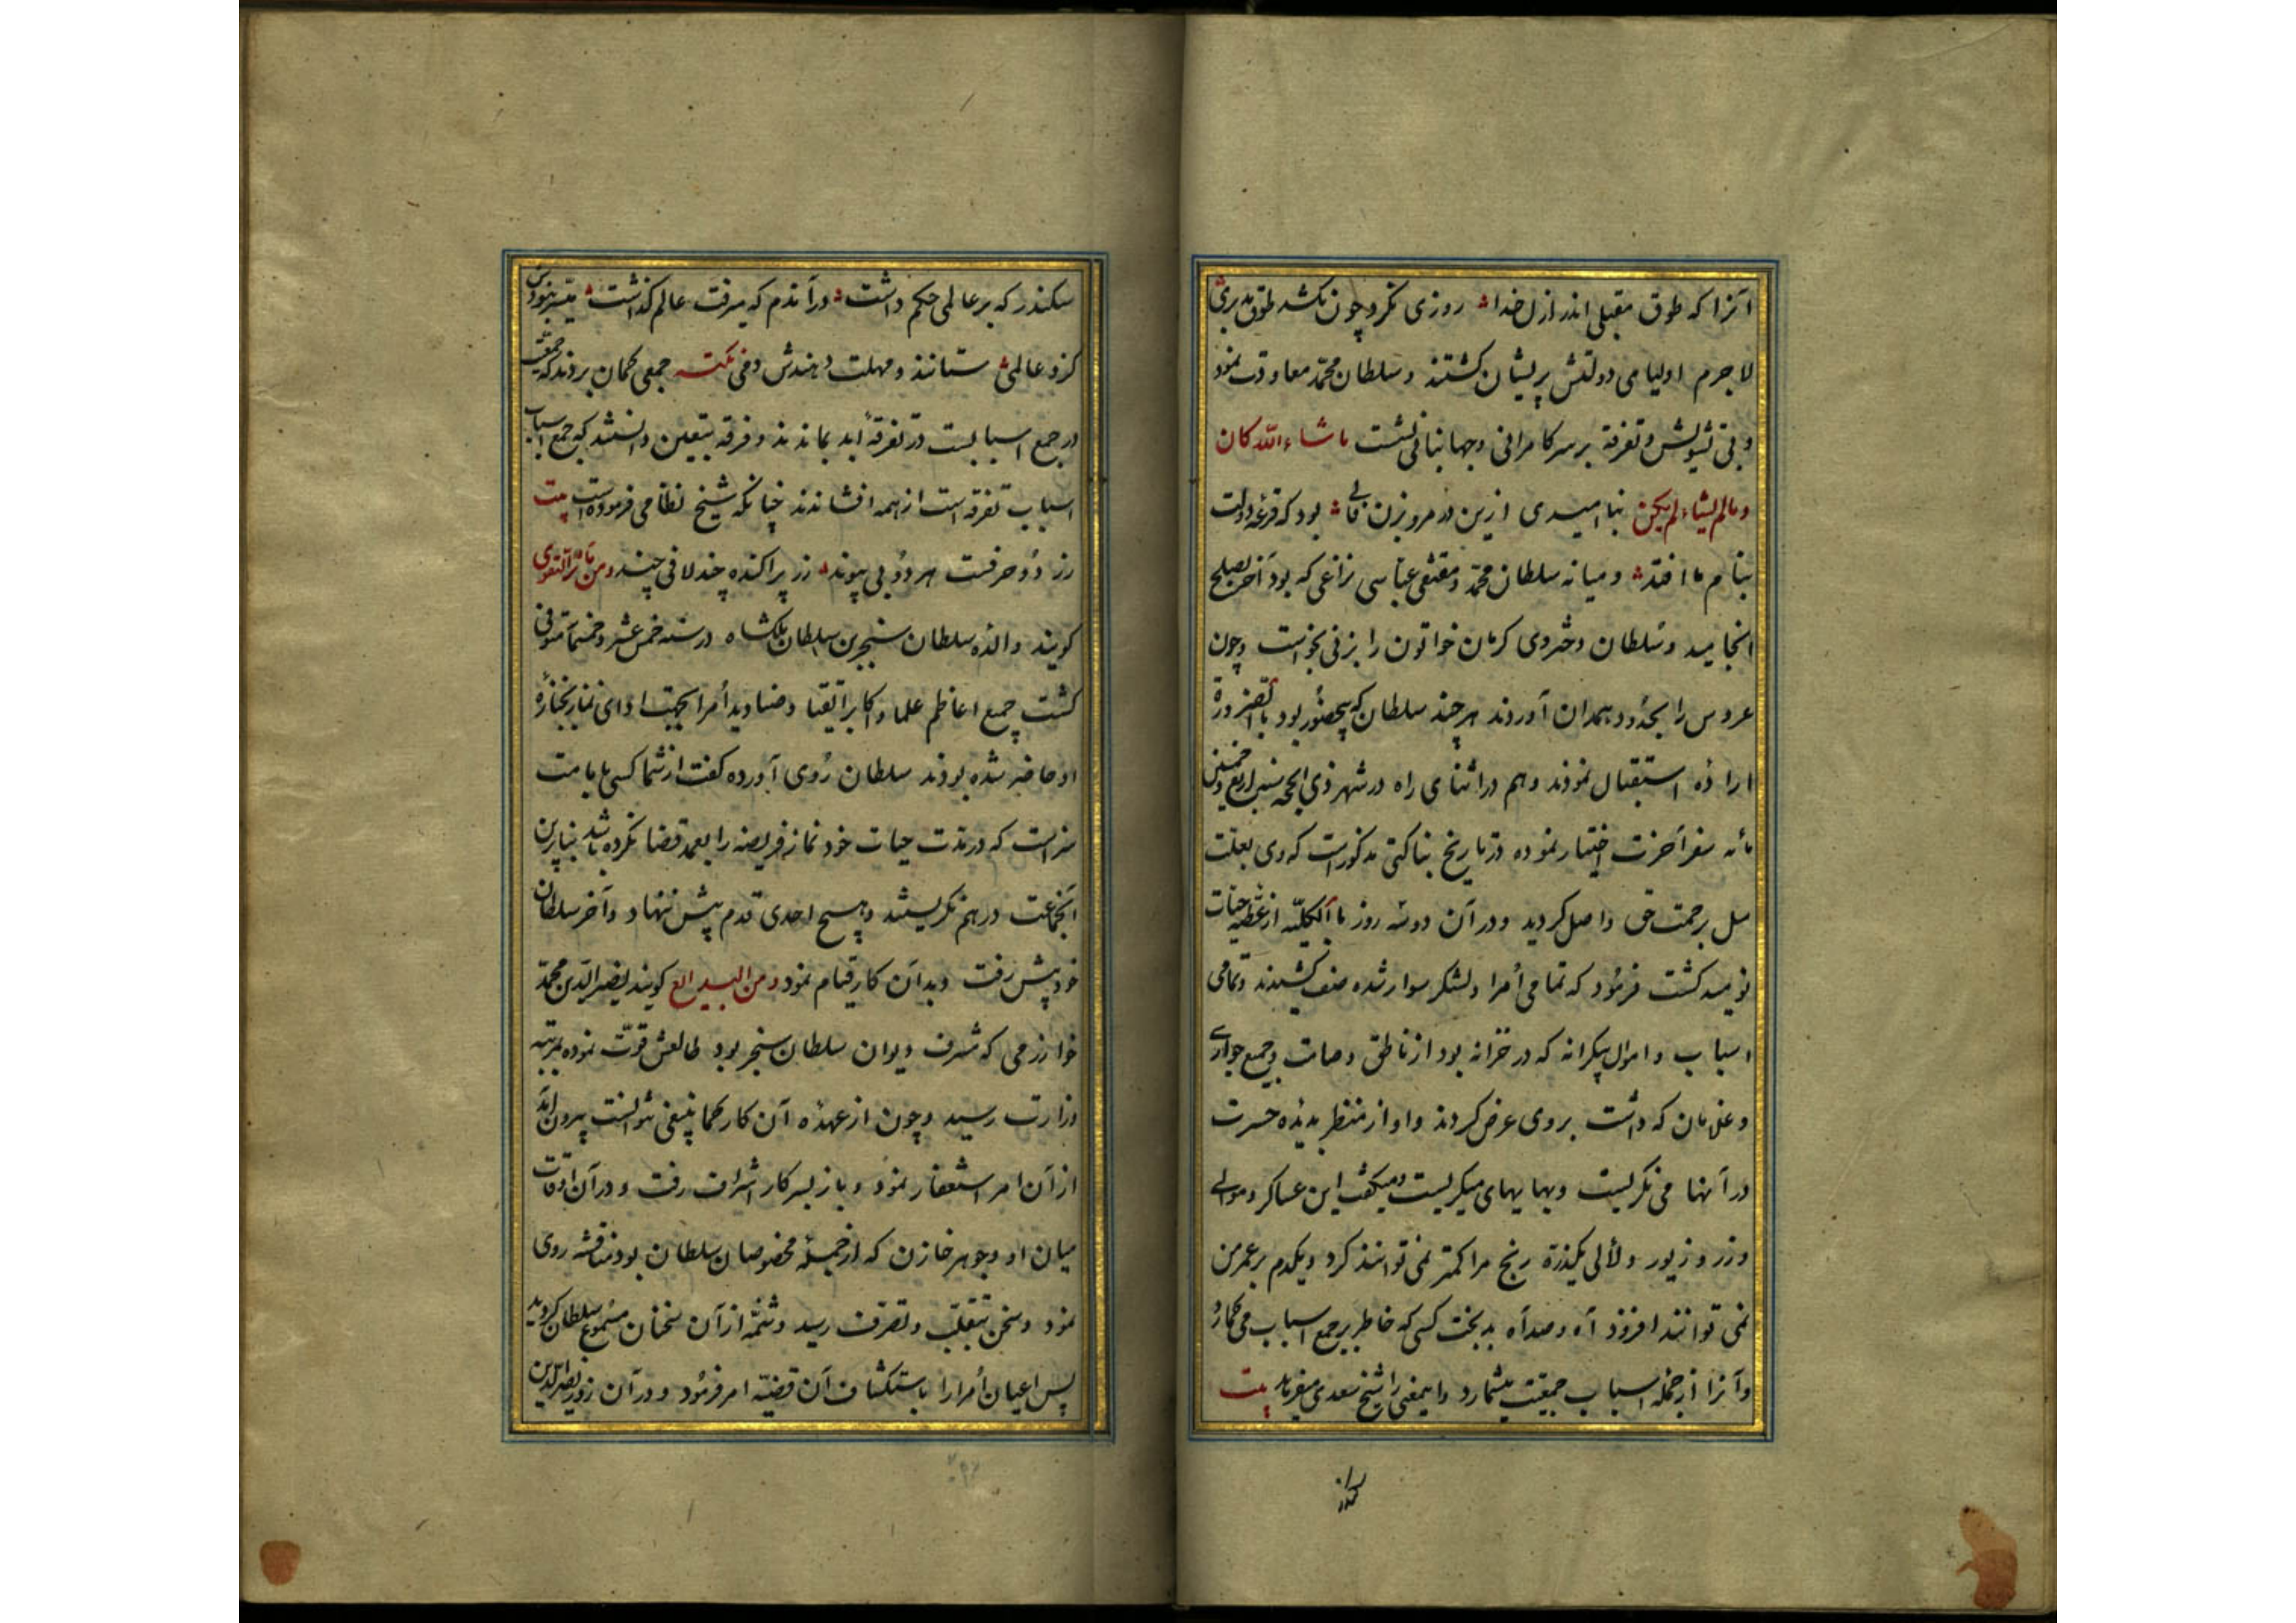 آنرا که طوق مقبلی اندر ازل خدا روزی نکرد چون نکشد طوق مدبری
لاجرم اولیای دولتش پریشان کشتند و سلطان محمد معاودت نمود
و بی تشویش و تفرقه بر سر کامرانی و جهانبانی نشست ماشاءالله کان
و مالم یشاء لم یکن بنا امیدی ازین در مرو بزن فالی بود که قرعه دولت
بنام ما افتد و میانه سلطان محمد و مقتفی عباسی نزاعی که بود آخر بصلح
انجامید و سلطان دختروی کرمان خواتون را بزنی بخواست و چون
عروس را بحدود همدان آوردند هر چند سلطان که بیحضور بود بالضرورة
اراده استقبال نمودند و هم در اثنای راه در شهر ذی الحجه سنه اربع و خمسین
مائه سفر آخرت اختیار نموده در تاریخ بناکتی مذکور است که وی بعلت
سل برحمت حق واصل کردید و در آن دو سه روز بالکلیه از عطیه حیات
نومید کشت فرمود که تمامی امرا و لشکر سوار شده صف کشیدند و تمامی
اسباب و اموال بیکرانه که در خزانه بود از ناطق و صامت و جمیع جواری
و غلمان که داشت بروی عرض کردند و او از منظر بدیده حسرت
در آنها می نکریست و بهایهای میکریست و میکفت این عساکر و موالی
و زر و زیور و لألی یکذره رنج مرا کمتر نمی توانند کرد و یکدم بر عمر من
نمی توانند افزود آه و صد آه بدبخت کسی که خاطر بر جمع اسباب می کمارد
و آنرا از جمله اسباب جمعیت میشمارد و اینمعنی را شیخ سعدی میفرماید بیت
سکندر
سکندر که بر عالمی حکم داشت در آندم که میرفت عالم کذاشت میسر نبودش
کزو عالمی ستانند و مهلت دهندش دمی نکته جمعی کمان بردند که جمعیت
در جمع اسبابست در تفرقه ابد بماندند و فرقه بیقین دانستند که جمع اسباب
اسباب تفرقه است از همه افشاندند چنانکه شیخ نظامی فرموده است بیت
زر دو حرفست هر دو بی پیوند زر پراکنده چند لافی چند و من مآثر التقوی
کویند والده سلطان سنجر بن سلطان ملکشاه در سنه خمس عشر و خمسمائه متوفی
کشت جمیع اعاظم علما و اکابر اتقیا و صنادید امرا بجهت ادای نماز بجنازه
او حاضر شده بودند سلطان روی آورده کفت از شما کسی بامامت
سزاست که در مدت حیات خود نماز فریضه را بعمد قضا نکرده باشد بنابرین
آنجماعت در هم نکریستند و هیچ احدی قدم پیش ننهاد و آخر سلطان
خود پیش رفت و بدان کار قیام نمود و من البدایع کویند نصیرالدین محمد
خوارزمی که مشرف دیوان سلطان سنجر بود طالعش قوت نموده بمرتبه
وزارت رسید و چون از عهده آن کار کما ینبغی نتوانست بیرون آید
از آن امر استعفار نمود و باز بسر کار اشراف رفت و در آن اوقات
میان او و جوهر خازن که از جمله مخصوصان سلطان بود مناقشه روی
نمود و سخن بتقلب و تصرف رسید و شمه از آن سخنان مسموع سلطان کردید
پس اعیان امرا را باستکشاف آن قضیه امر فرمود و در آن روز نصیرالدین